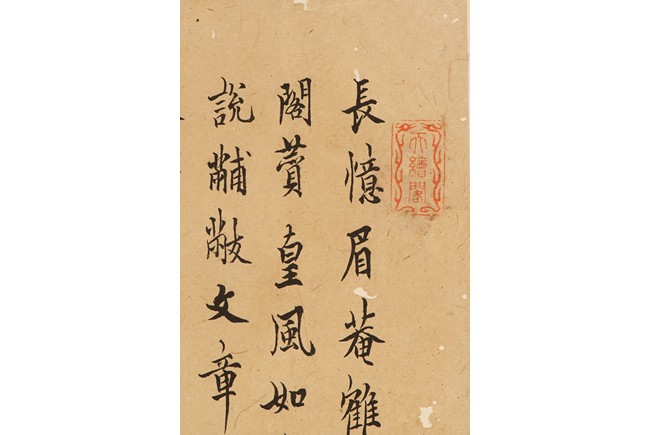 天繪閣
長憶眉菴
閣贊皇風如
說黼黻文章